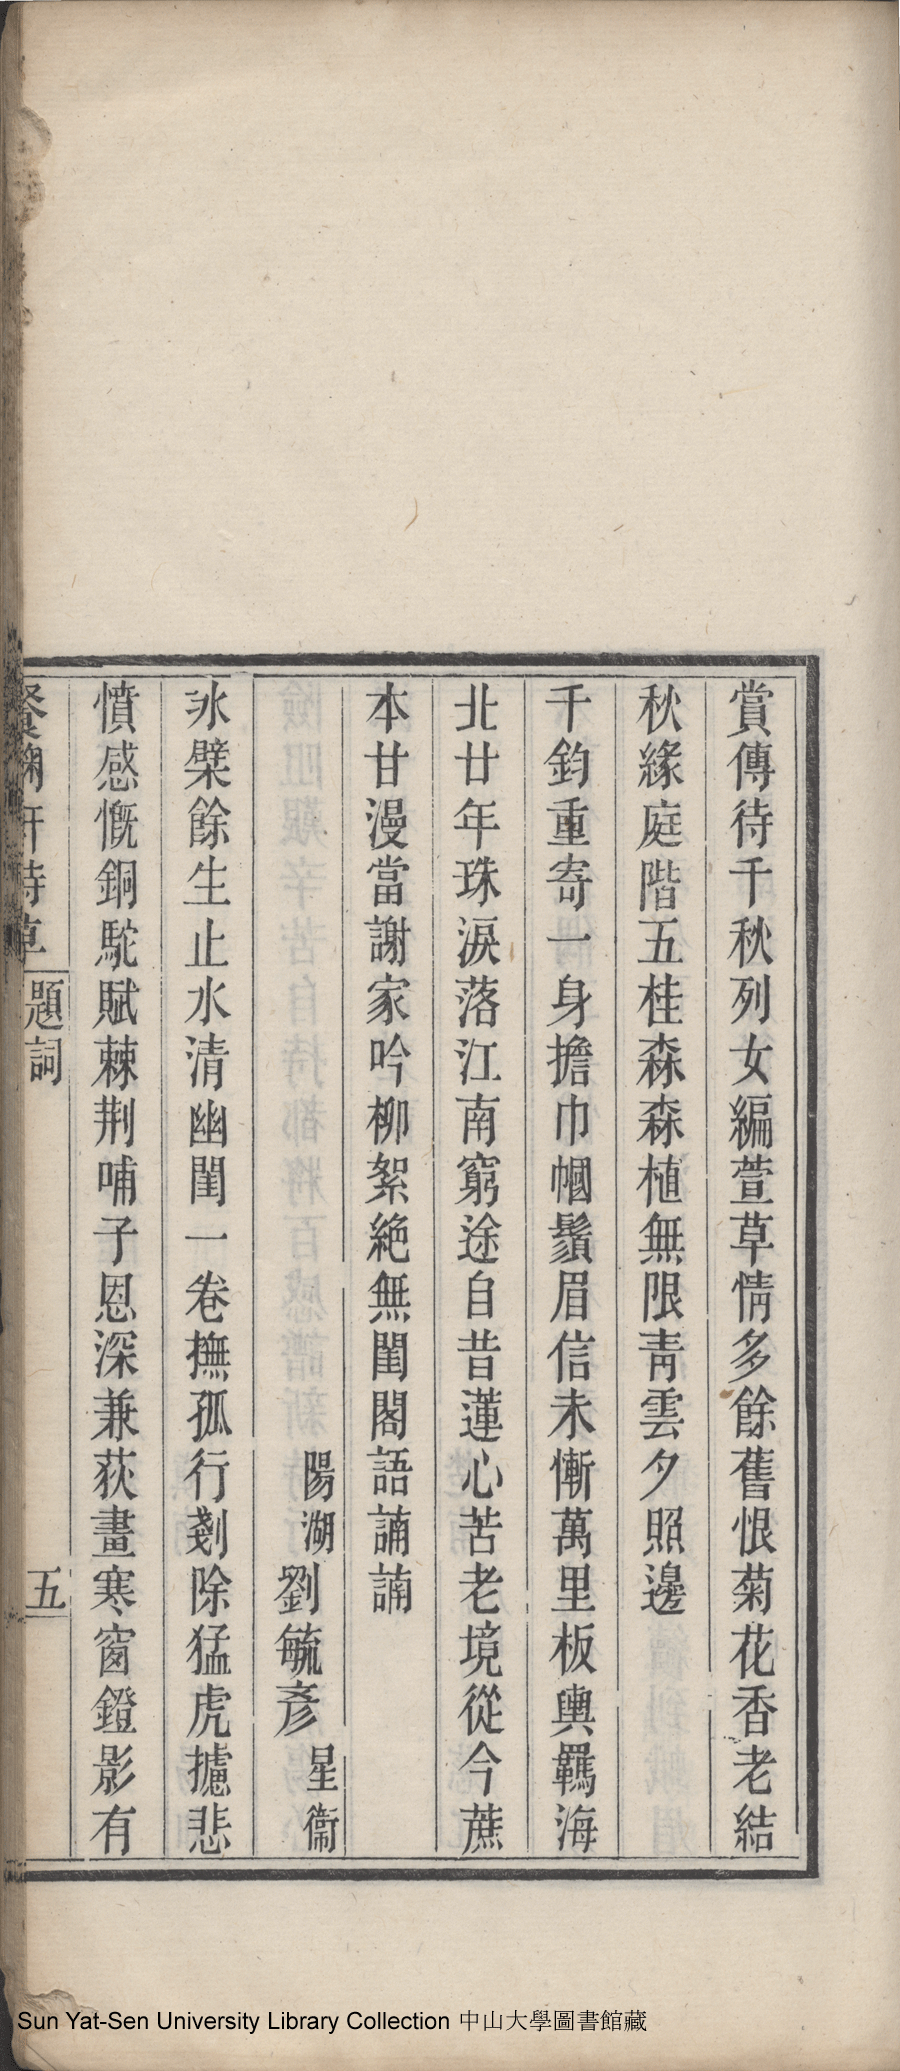 賞傳待千秋列女編萱草情多餘舊恨菊花香老結
秋緣庭階五桂森森植無限靑雲夕照邊
千鈞重寄一身擔巾幗鬚眉信未慚萬里板輿羈海
北廿年珠淚落江南窮途自昔蓮心苦老境從今蔗
本甘漫當謝家吟柳絮絶無閨閤語諵諵
陽湖劉毓彥星衞
氷檗餘生止水清幽閨一卷撫孤行剗除猛虎攄悲
憤感慨銅駝賦棘荆哺子恩深兼荻畫寒窗鐙影有
餐菊軒詩草 題詞 五
Sun Yat-Sen University Library Collection 中山大學圖書館藏